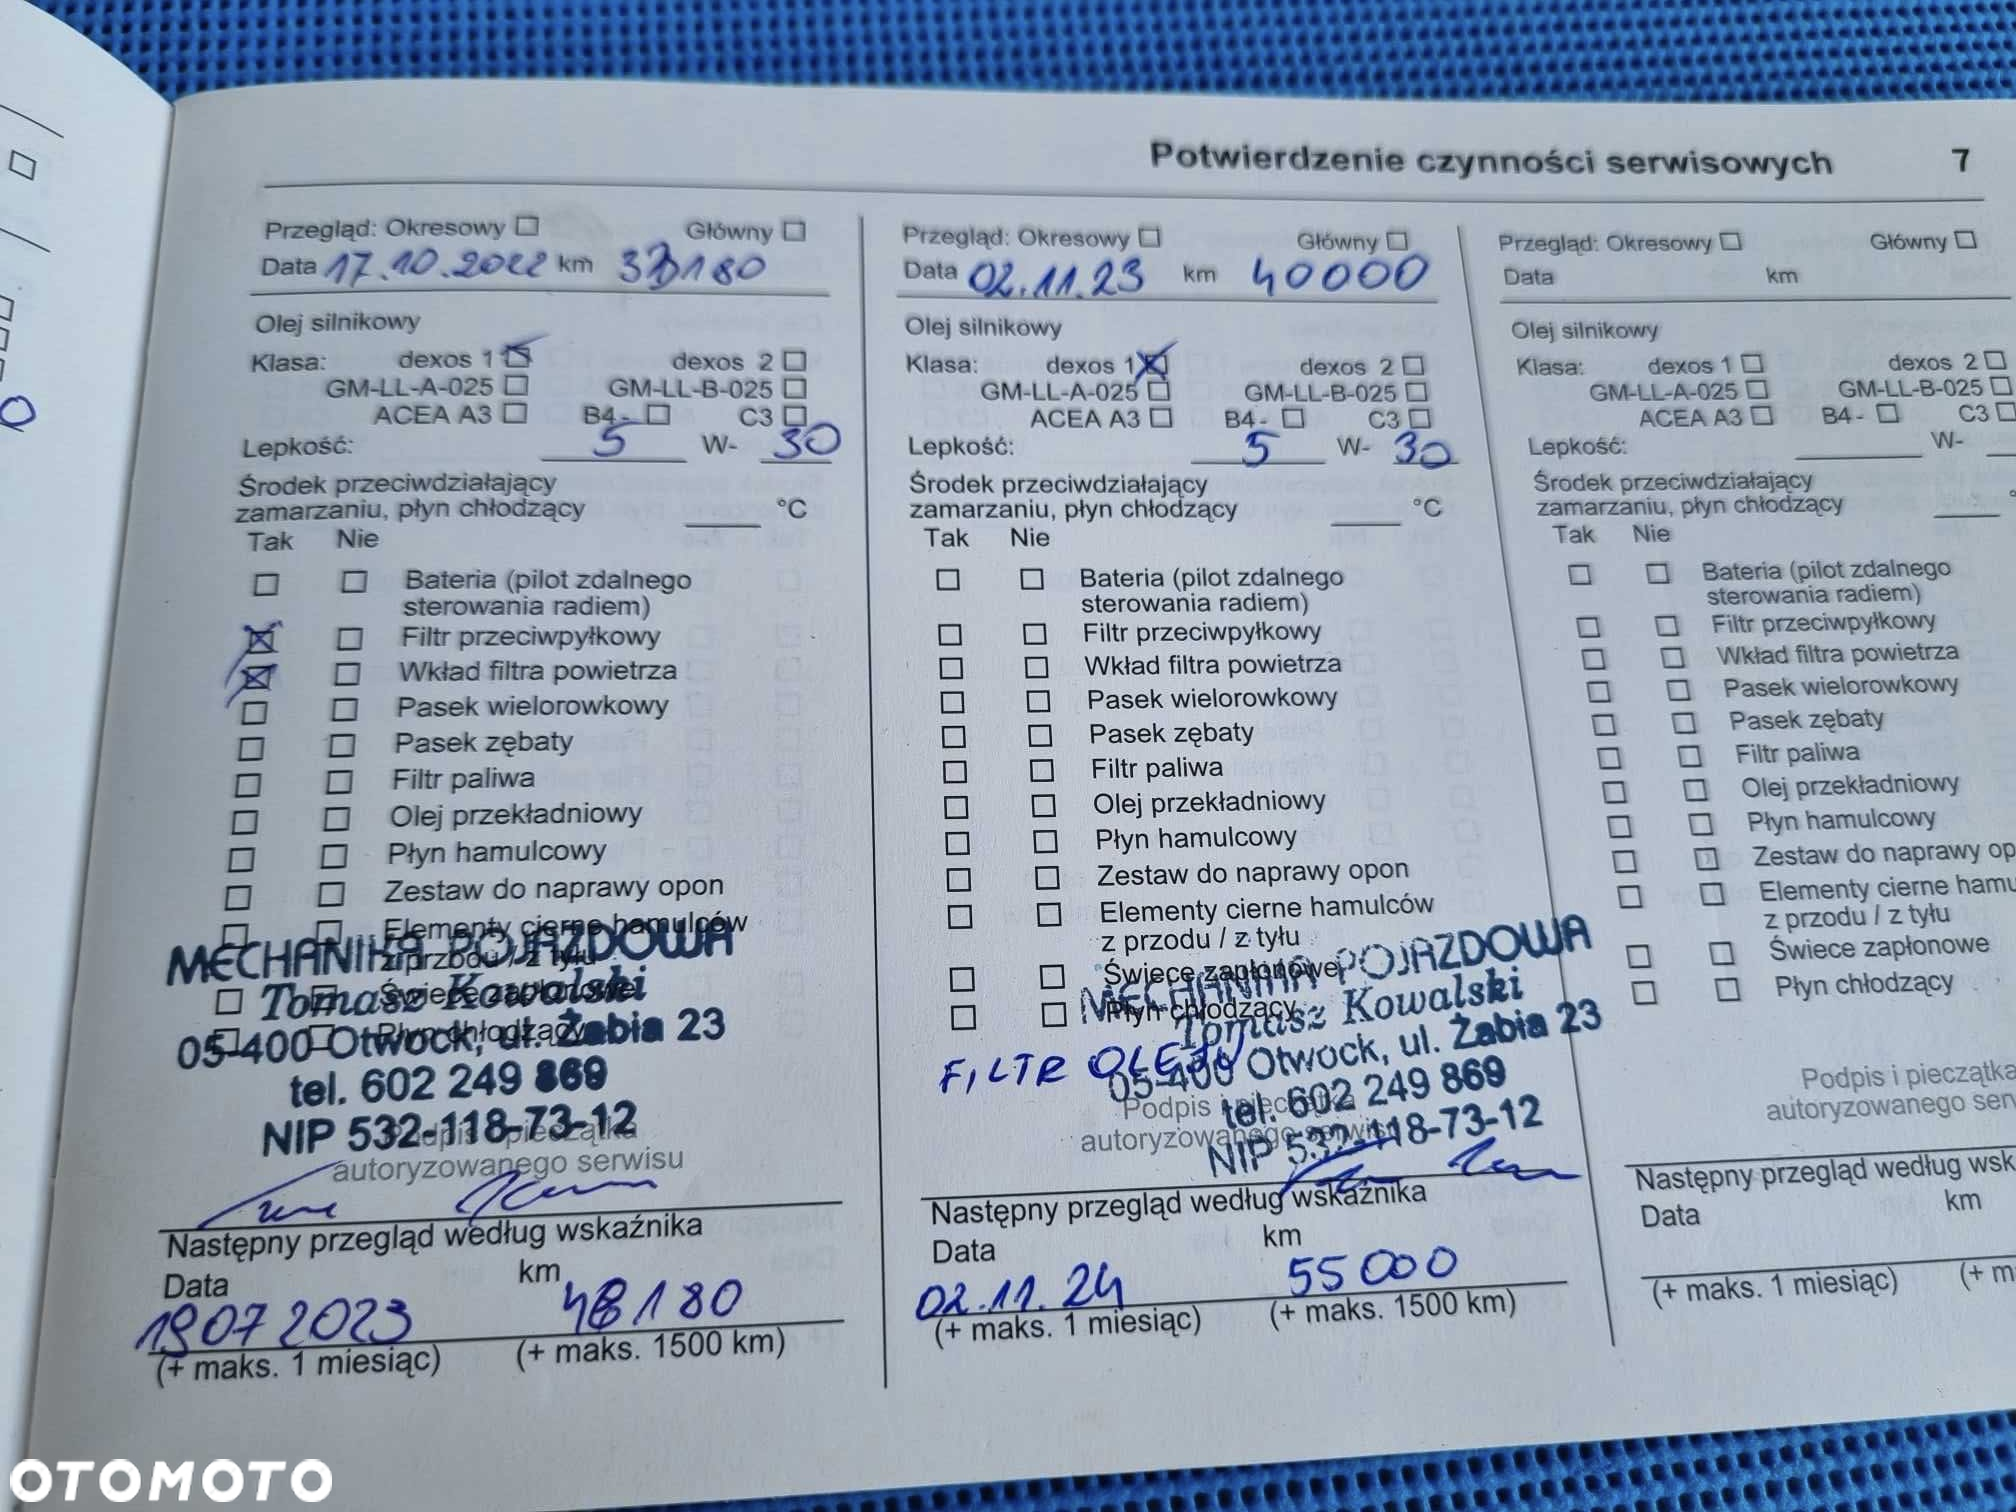 Potwierdzenie czynności serwisowych 7
Przegląd: Okresowy Główny
Data 17.10.2022 km 33180
Olej silnikowy
Klasa: dexos 1 dexos 2
GM-LL-A-025 GM-LL-B-025
ACEA A3 B4- C3
Lepkość: 5 W- 30
Środek przeciwdziałający
zamarzaniu, płyn chłodzący °C
Tak Nie
Bateria (pilot zdalnego
sterowania radiem)
Filtr przeciwpyłkowy
Wkład filtra powietrza
Pasek wielorowkowy
Pasek zębaty
Filtr paliwa
Olej przekładniowy
Płyn hamulcowy
Zestaw do naprawy opon
Elementy cierne hamulców
z przodu / z tyłu
Świece zapłonowe
Płyn chłodzący
MECHANIKA POJAZDOWA
Tomasz Kowalski
05-400 Otwock, ul. Żabia 23
tel. 602 249 869
NIP 532-118-73-12
Podpis i pieczątka
autoryzowanego serwisu
Następny przegląd według wskaźnika
Data km
19 07 2023 48180
(+ maks. 1 miesiąc) (+ maks. 1500 km)
Przegląd: Okresowy Główny
Data 02.11.23 km 40000
Olej silnikowy
Klasa: dexos 1 dexos 2
GM-LL-A-025 GM-LL-B-025
ACEA A3 B4- C3
Lepkość: 5 W- 30
Środek przeciwdziałający
zamarzaniu, płyn chłodzący °C
Tak Nie
Bateria (pilot zdalnego
sterowania radiem)
Filtr przeciwpyłkowy
Wkład filtra powietrza
Pasek wielorowkowy
Pasek zębaty
Filtr paliwa
Olej przekładniowy
Płyn hamulcowy
Zestaw do naprawy opon
Elementy cierne hamulców
z przodu / z tyłu
Świece zapłonowe
Płyn chłodzący
MECHANIKA POJAZDOWA
Tomasz Kowalski
FILTR OLEJU
05-400 Otwock, ul. Żabia 23
tel. 602 249 869
NIP 532-118-73-12
Podpis i pieczątka
autoryzowanego serwisu
Następny przegląd według wskaźnika
Data km
02.11.24 55000
(+ maks. 1 miesiąc) (+ maks. 1500 km)
Przegląd: Okresowy Główny
Data km
Olej silnikowy
Klasa: dexos 1 dexos 2
GM-LL-A-025 GM-LL-B-025
ACEA A3 B4- C3
Lepkość: W-
Środek przeciwdziałający
zamarzaniu, płyn chłodzący
Tak Nie
Bateria (pilot zdalnego
sterowania radiem)
Filtr przeciwpyłkowy
Wkład filtra powietrza
Pasek wielorowkowy
Pasek zębaty
Filtr paliwa
Olej przekładniowy
Płyn hamulcowy
Zestaw do naprawy op
Elementy cierne hamu
z przodu / z tyłu
Świece zapłonowe
Płyn chłodzący
Podpis i pieczątka
autoryzowanego ser
Następny przegląd według wsk
Data km
(+ maks. 1 miesiąc) (+ m
OTOMOTO